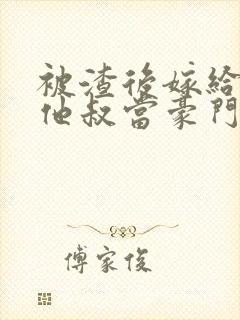 被渣後嫁給
他叔當豪門
傅家俊